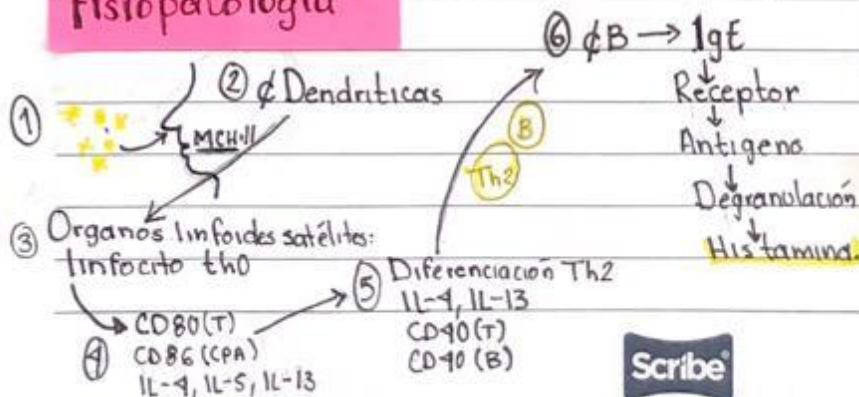 Fisiopatología
①
② ₵ Dendríticas
MCH-II
③ Organos linfoides satélites:
linfocito th0
④ CD80(T)
CD86(CPA)
IL-4, IL-5, IL-13
⑤ Diferenciación Th2
IL-4, IL-13
CD40(T)
CD40(B)
Th2
B
⑥ ₵B → IgE
↓
Receptor
↓
Antígeno
↓
Degranulación
↓
Histamina.
Scribe